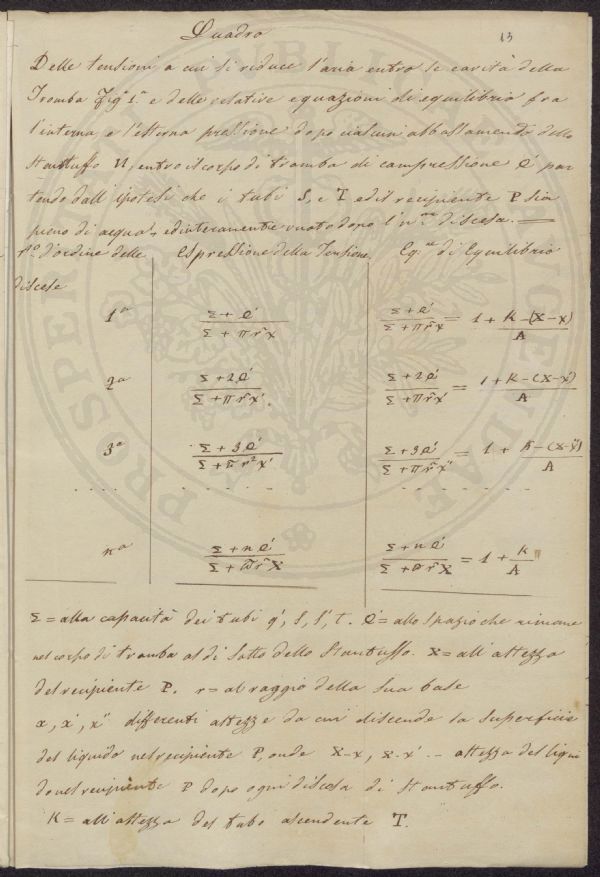 Quadro
13
Delle tensioni a cui si riduce l'aria entro le cavità della
Tromba Figª 1ª e delle relative equazioni di equilibrio fra
l'interna, e l'esterna pressione dopo ciascun abbassamento dello
Stantuffo N, entro il corpo di tromba di compressione C' par
tendo dall'ipotesi che i tubi S, e T ed il recipiente P sia
pieno di acqua, ed interamente vuoto dopo l'nma discesa.
N.o d'ordine delle discese | Espressione della Tensione | Eq.ni di Equilibrio
1ª | (Σ + C')/(Σ + πr²x) | (Σ + C')/(Σ + πr²x) = 1 + (K – (X – x))/A
2ª | (Σ + 2C')/(Σ + πr²x') | (Σ + 2C')/(Σ + πr²x') = 1 + (K – (X – x'))/A
3ª | (Σ + 3C')/(Σ + πr²x') | (Σ + 3C')/(Σ + πr²x'') = 1 + (K – (X – x''))/A
nª | (Σ + nC')/(Σ + πr²X) | (Σ + nC')/(Σ + πr²X) = 1 + K/A
Σ = alla capacità dei tubi q', S, S', t. C' = allo spazio che rimane
nel corpo di tromba al di sotto dello Stantuffo. X = all'altezza
del recipiente P. r = al raggio della sua base
x, x', x'' differenti altezze da cui discende la superficie
del liquido nel recipiente P, onde X-x, X-x' .. altezza del liqui
do nel recipiente P dopo ogni discesa di Stantuffo.
K = all'altezza del tubo ascendente T.
PROSPER